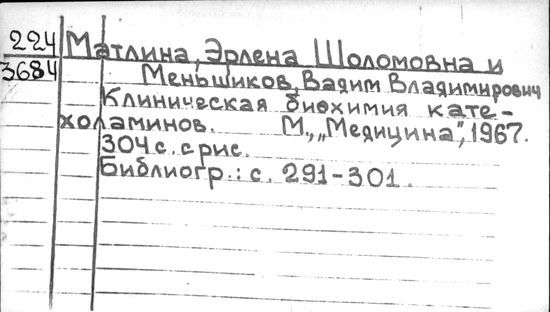 224 Матлина, Эрлена Шоломовна и
3684 Меньшиков, Вадим Владимирович
Клиническая биохимия кате-
холаминов. М., „Медицина", 1967.
304 с. с рис.
Библиогр.: с. 291-301.